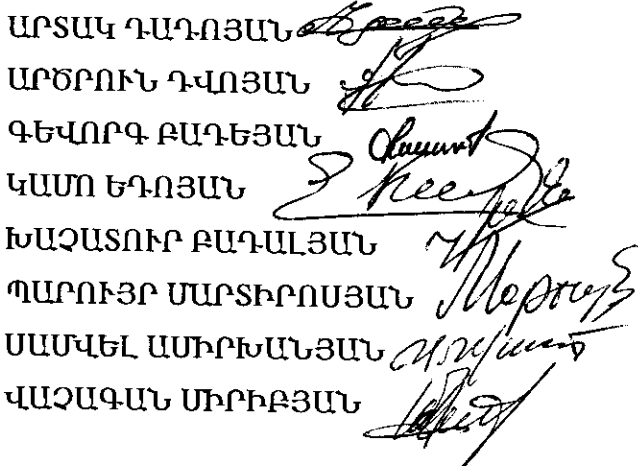 ԱՐՏԱԿ ԴԱԴՈՅԱՆ
ԱՐԾՐՈՒՆ ԴՎՈՅԱՆ
ԳԵՎՈՐԳ ԲԱԴԵՅԱՆ
ԿԱՄՈ ԵԴՈՅԱՆ
ԽԱՉԱՏՈՒՐ ԲԱԴԱԼՅԱՆ
ՊԱՐՈՒՅՐ ՄԱՐՏԻՐՈՍՅԱՆ
ՍԱՄՎԵԼ ԱՄԻՐԽԱՆՅԱՆ
ՎԱՉԱԳԱՆ ՄԻՐԻԲՅԱՆ